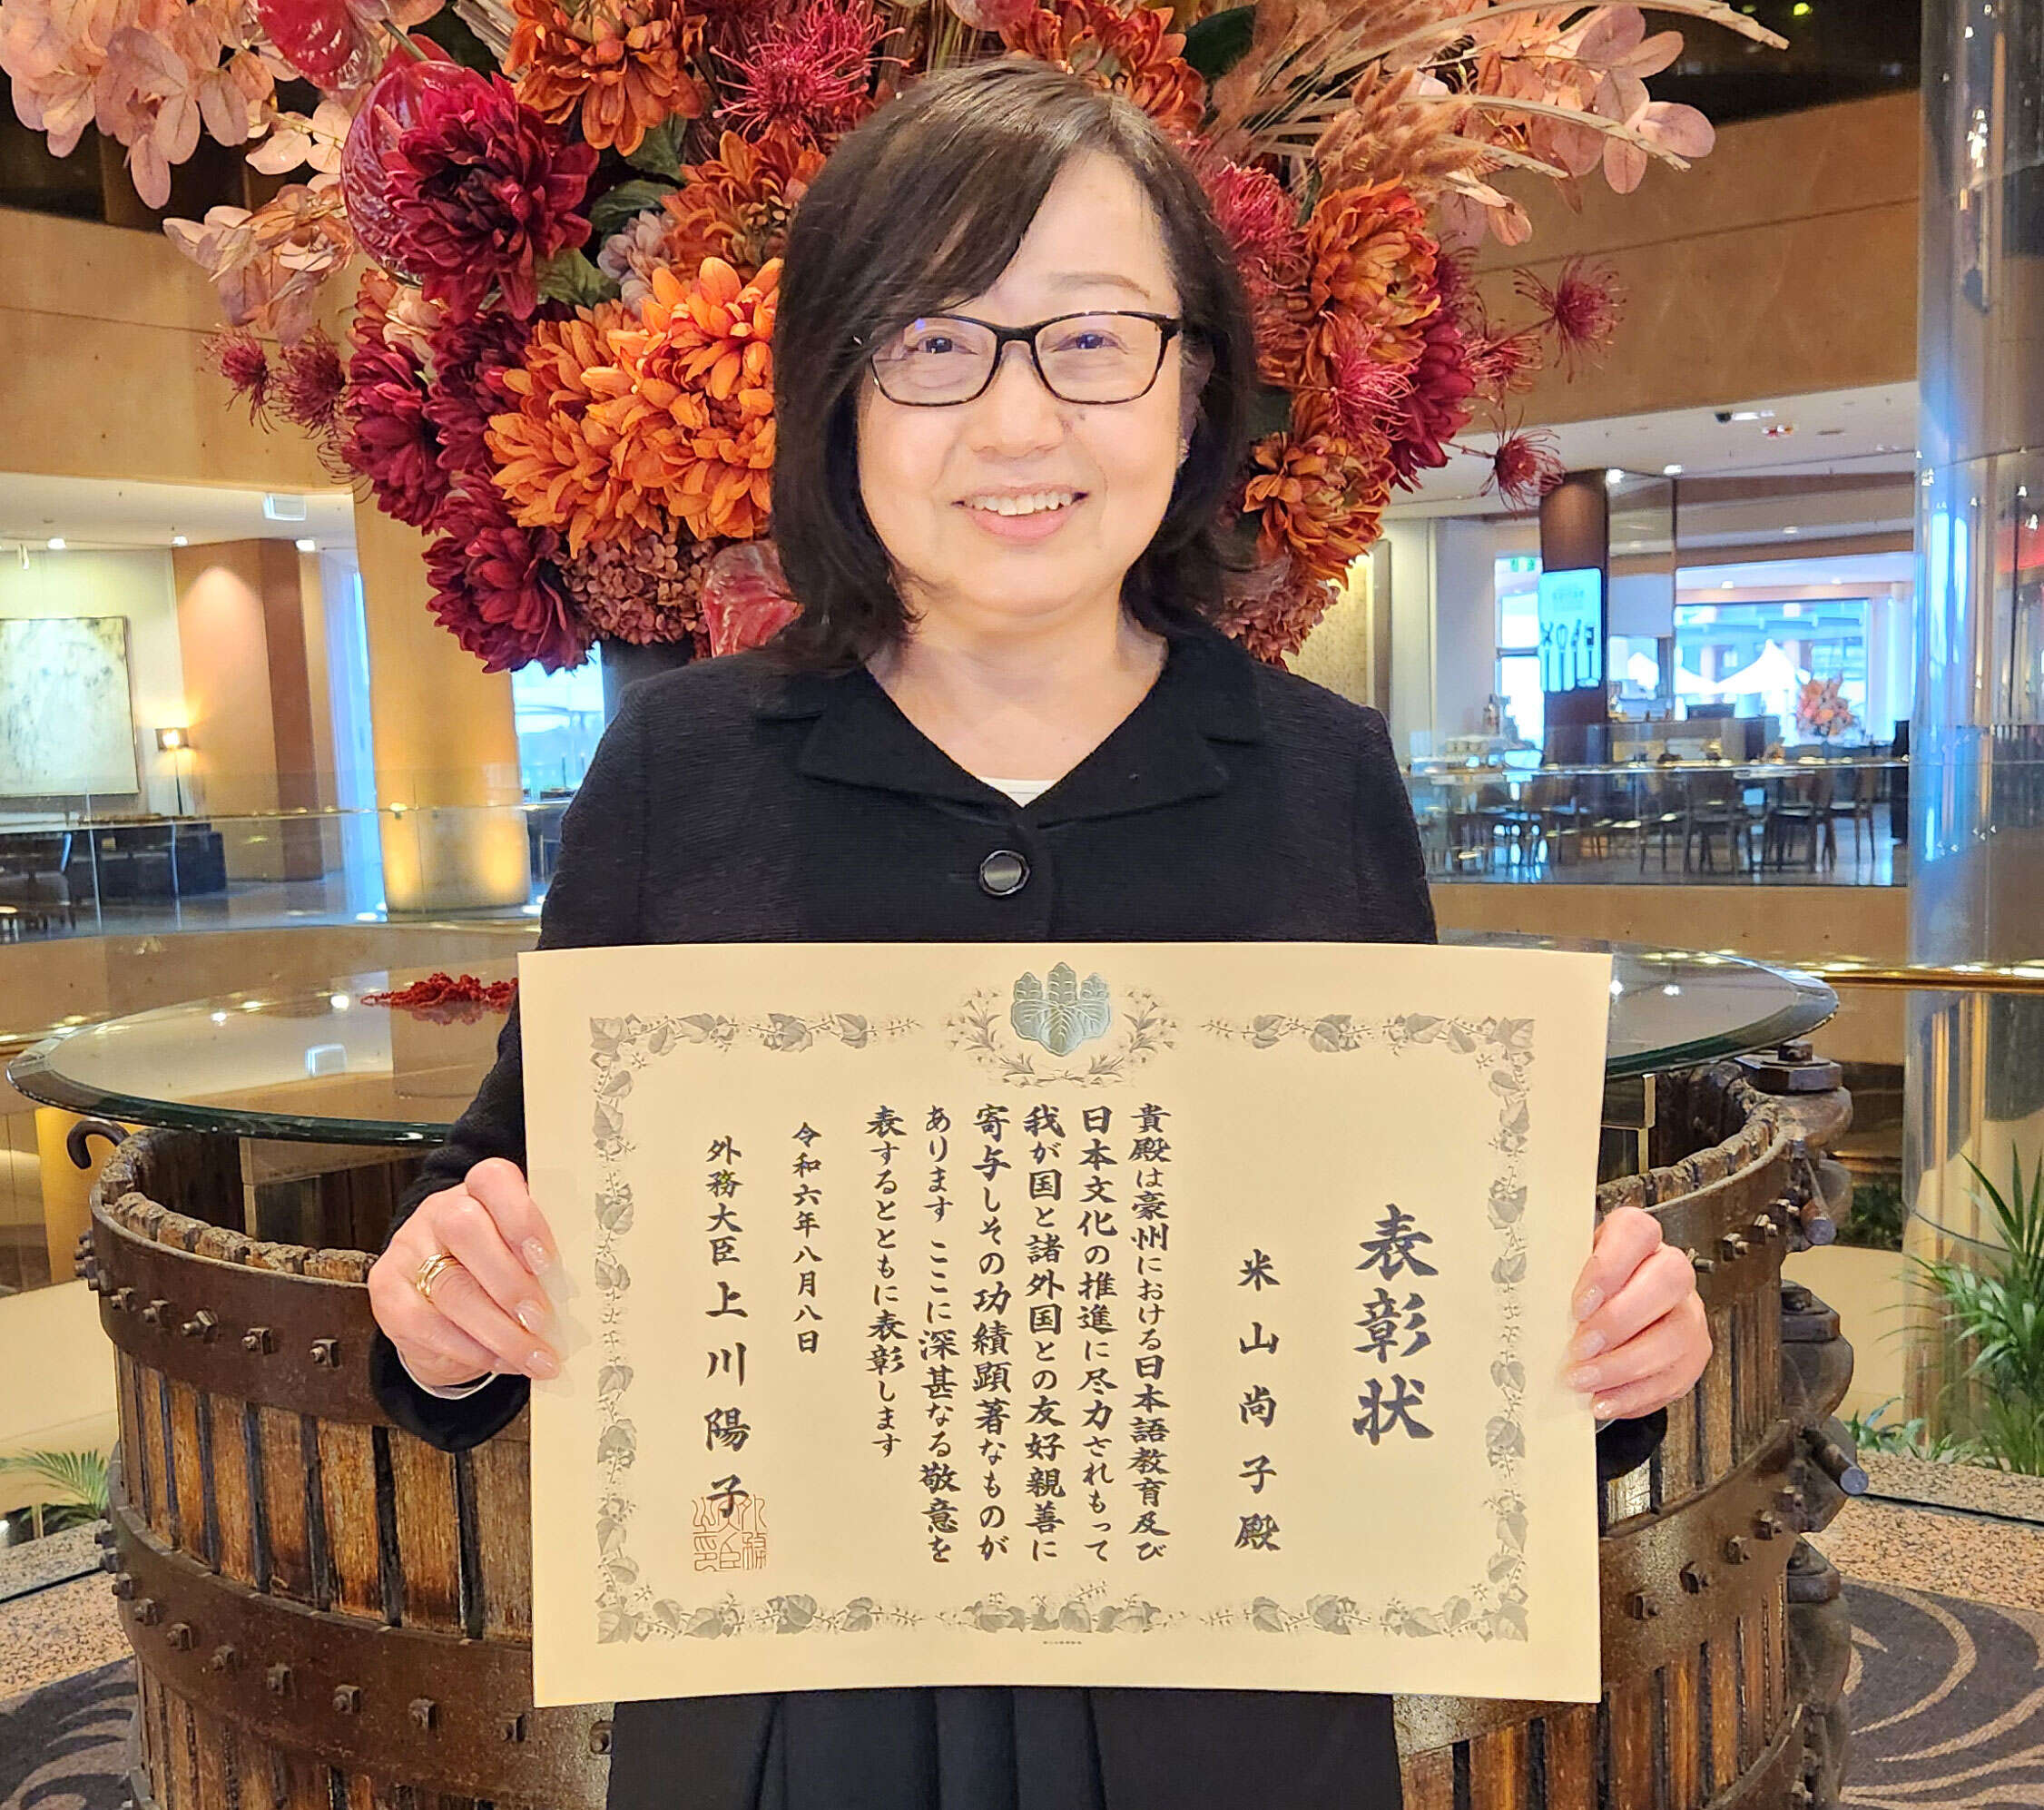 表彰状
米山尚子殿
貴殿は豪州における日本語教育及び
日本文化の推進に尽力されもって
我が国と諸外国との友好親善に
寄与しその功績顕著なものが
あります ここに深甚なる敬意を
表するとともに表彰します
令和六年八月八日
外務大臣 上川陽子